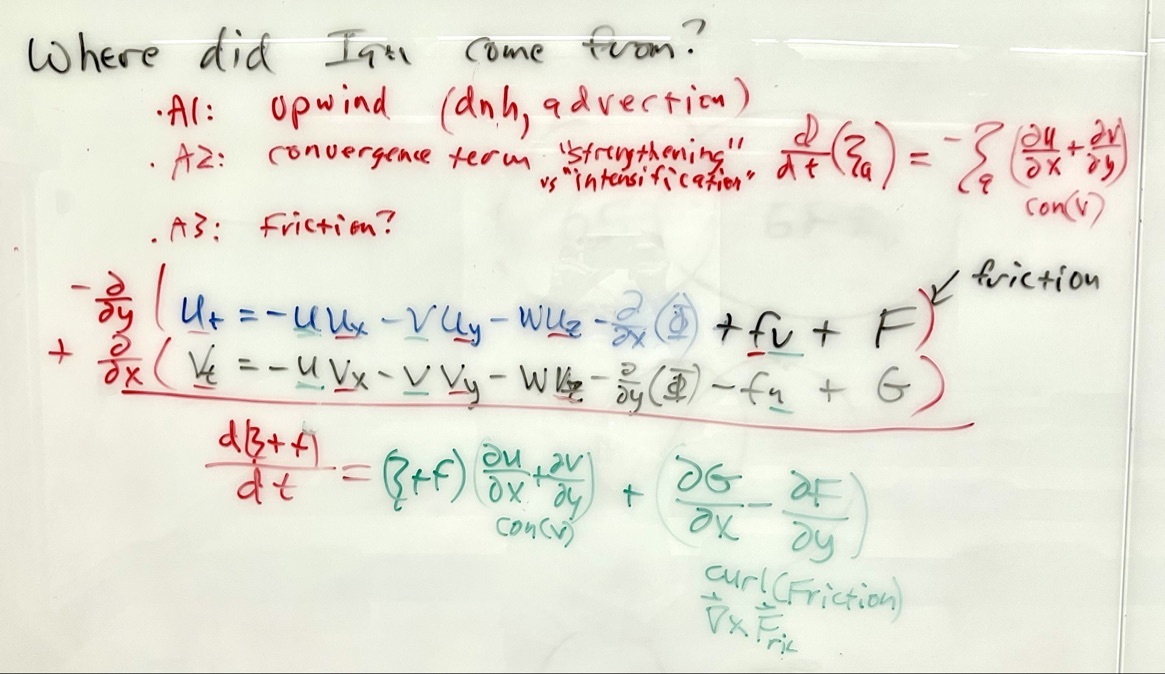 Where did Ian come from?
·A1: upwind (duh, advection)
·A2: convergence term "strengthening" vs "intensification" d/dt(ζa) = -ζa (∂u/∂x + ∂v/∂y)
con(V)
·A3: Friction?
friction
-∂/∂y (ut = -uux - vuy - wuz - ∂/∂x(Φ) + fv + F)
+ ∂/∂x (vt = -uvx - vvy - wvz - ∂/∂y(Φ) - fu + G)
d(ζ+f)/dt = (ζ+f)(∂u/∂x + ∂v/∂y) + (∂G/∂x - ∂F/∂y)
con(v)
curl(Friction)
∇⃗ x F⃗ric